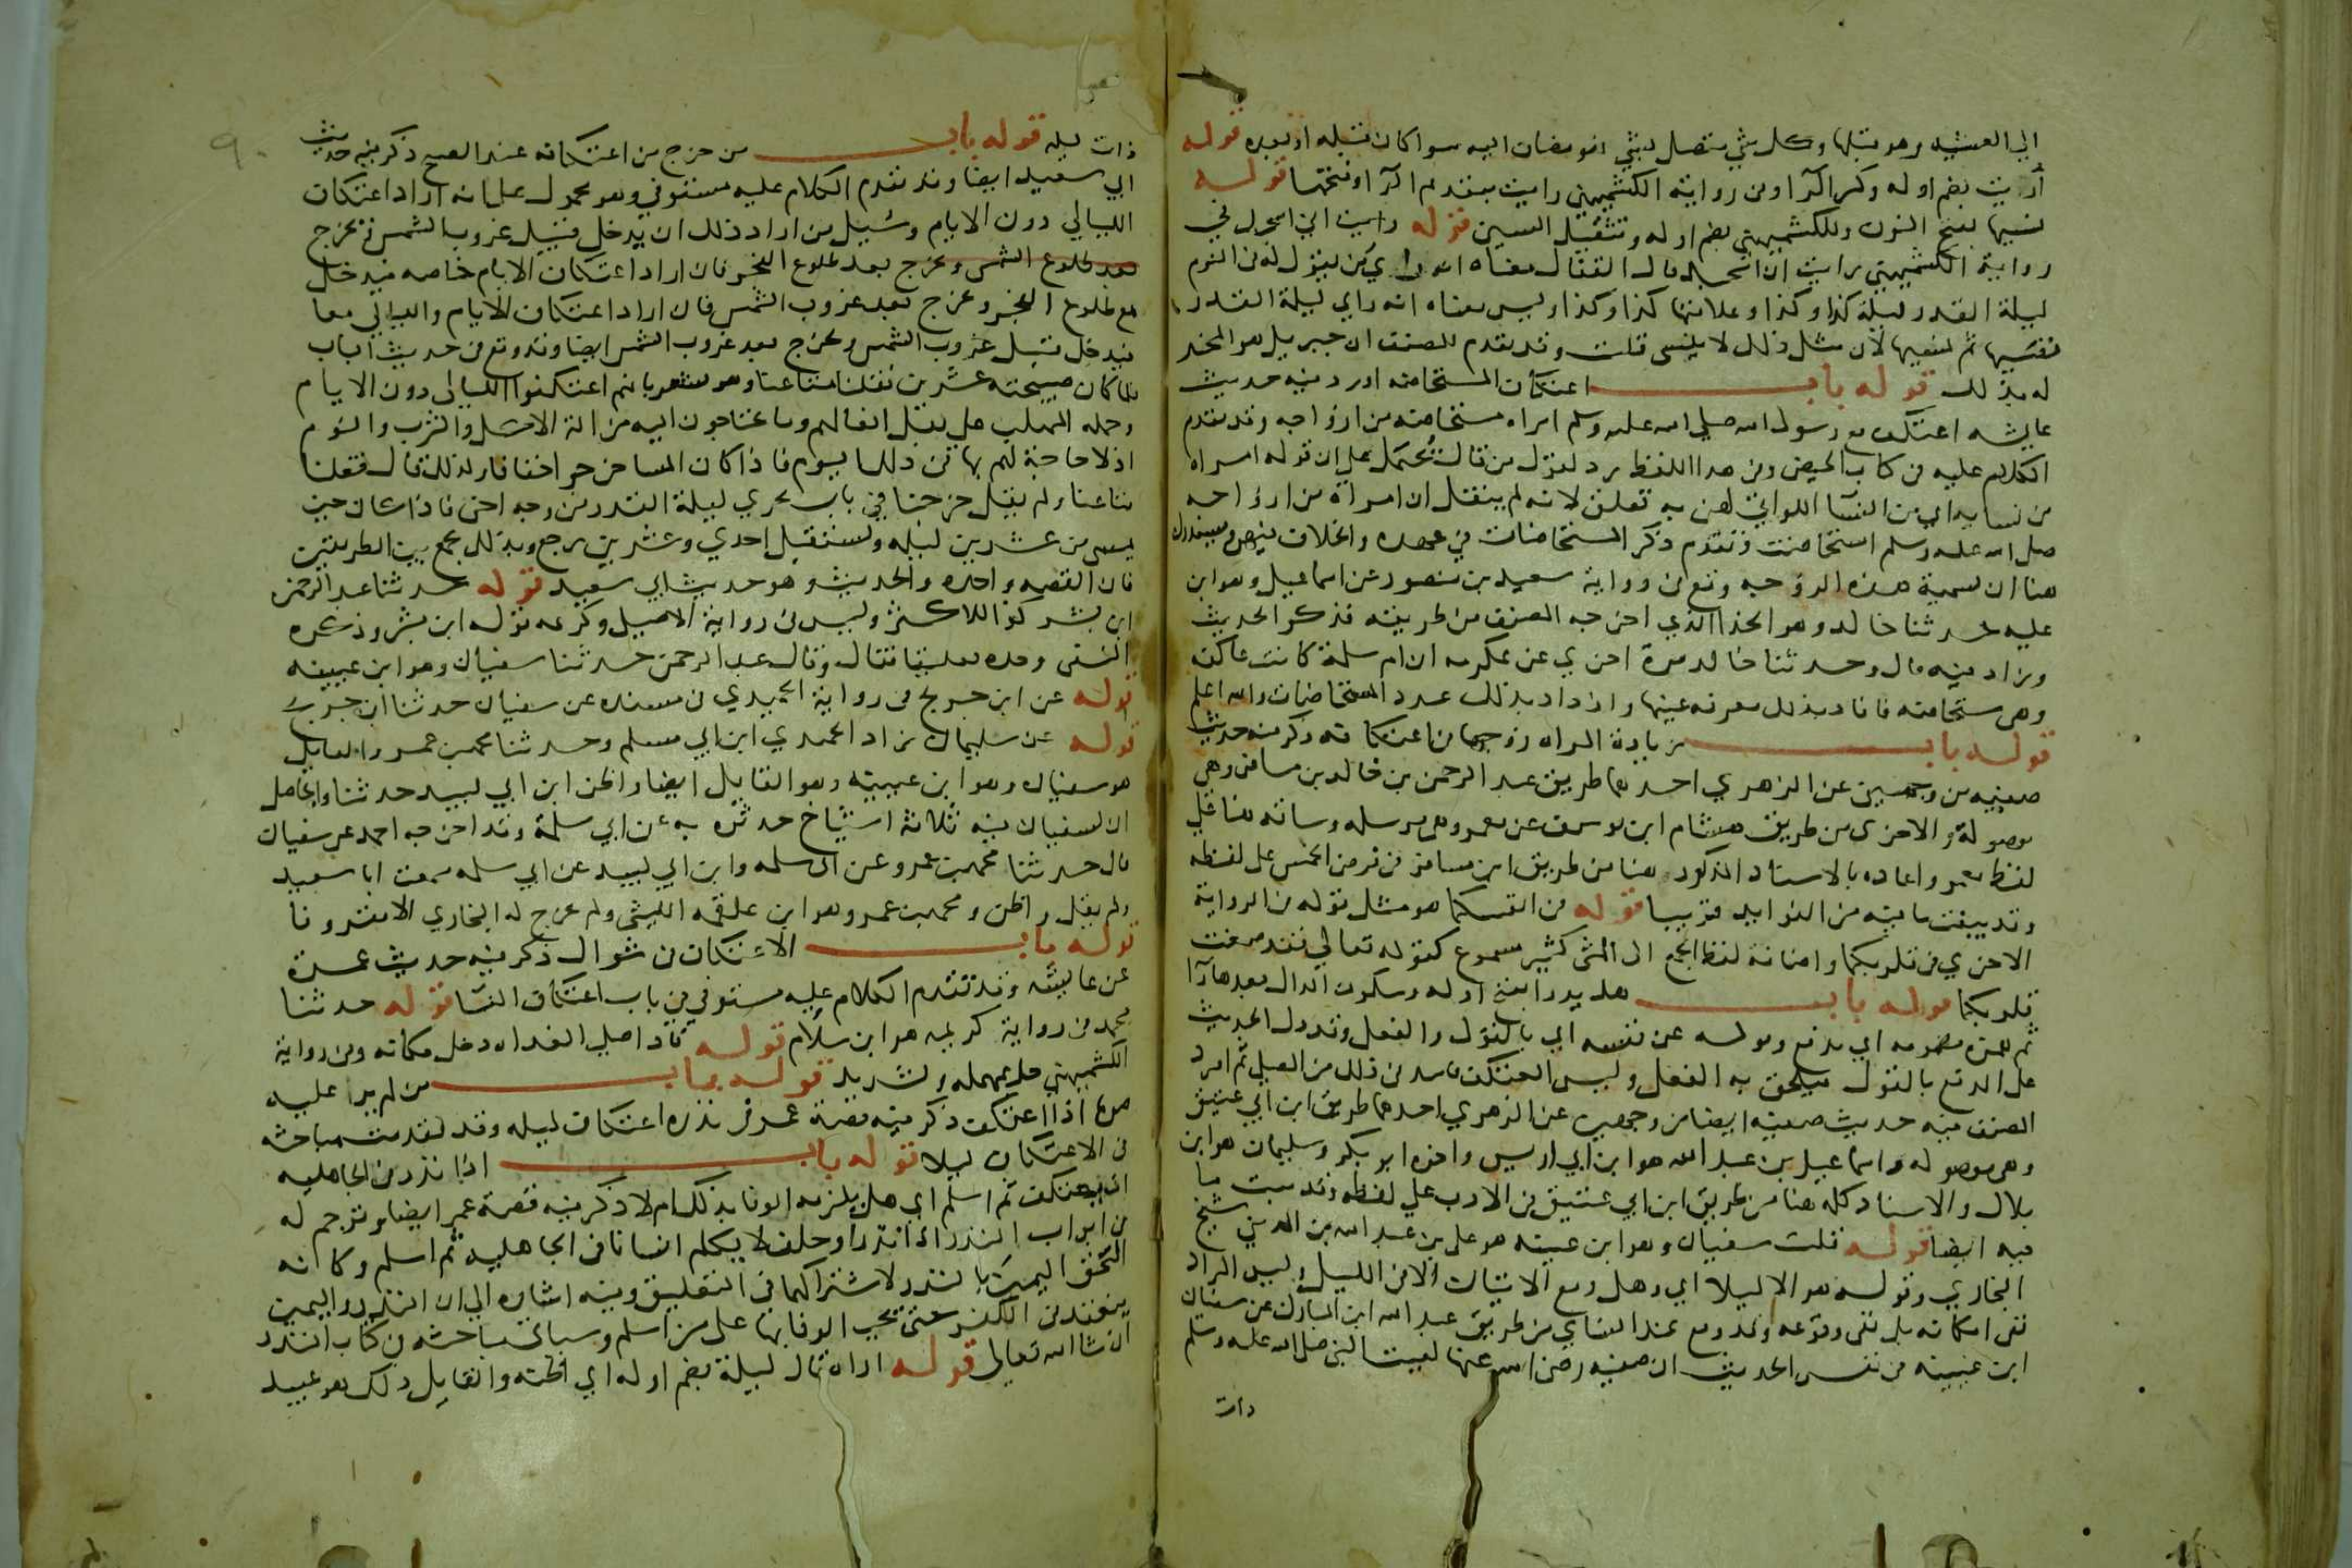 الى العشية وهو قبلها وكل شي متصل بشي فهو مضاف اليه سوا كان قبله او بعده قوله
أريت بضم اوله وكسر الرا وفي رواية الكشميهني رايت بتقديم الرا وفتحها قوله
نسيها بفتح النون وللكشميهني بضم اوله وتثقيل السين قوله رايت اني اسجد في
رواية الكشميهني رايت ان اسجد قال القفال معناه انه راي من يقول له في النوم
ليلة القدر ليلة كذا وكذا وعلامتها كذا وكذا وليس معناه انه راي ليلة القدر
نفسها ثم نسيها لان مثل ذلك لا ينسى قلت وقد تقدم للمصنف ان جبريل هو المخبر
له بذلك قوله باب اعتكاف المستحاضة اورد فيه حديث
عايشه اعتكف مع رسول الله صلى الله عليه وسلم امراه مستحاضه من ازواجه وقد تقدم
الكلام عليه في كتاب الحيض وفي هذا اللفظ رد لقول من قال يحتمل على ان قوله امراه
من نسايه اي من النسا اللواتي لهن به تعلق لانه لم ينقل ان امراه من ازواجه
صلى الله عليه وسلم استحاضت وتقدم ذكر المستحاضات في عهده والخلاف فيهن
هنا ان تسمية هذه الزوجه وقع في رواية سعيد بن منصور عن اسماعيل وهو ابن
عليه حدثنا خالد وهو الحذا الذي اخرجه المصنف من طريقه فذكر الحديث
وزاد فيه قال وحدثنا خالد مرة اخري عن عكرمه ان ام سلمة كانت عاكفه
وهي مستحاضه فافاد بذلك معرفه عينها وازداد بذلك عدد المستحاضات والله اعلم
قوله باب زيادة المراه زوجها في اعتكافه ذكر فيه حديث
صفيه من وجهين عن الزهري احدهما طريق عبد الرحمن بن خالد بن مسافر وهي
موصولة والاخرى من طريق هشام ابن يوسف عن معمر وهي مرسله وساقه هنا على
لفظ معمر واعاده بالاسناد المذكور هنا من طريق ابن مسافر في فرض الخمس على لفظه
وقد بينت ما فيه من الفوايد قريبا قوله في انفسكما هو مثل قوله في الرواية
الاخرى في قلوبكما واضافة لفظ الجمع الى المثنى كثير مسموع كقوله تعالى فقد صغت
قلوبكما قوله باب هل يدرا بفتح اوله وسكون الدال بعدها را
ثم همزة مضمومه اي يدفع وقوله عن نفسه اي بالقول والفعل وقد دل الحديث
على الدفع بالقول فيلحق به الفعل وليس المعتكف باشد في ذلك من المصلي ثم اورد
المصنف فيه حديث صفيه ايضا من وجهين عن الزهري احدهما طريق ابن ابي عتيق
وهي موصوله واسماعيل بن عبد الله هو ابن ابي اويس واخوه ابو بكر وسليمان هو ابن
بلال والاسناد كله هنا من طريق ابن ابي عتيق في الادب على لفظه وقد بينت ما
فيه ايضا قوله قلت سفيان وهو ابن عيينه هو علي بن عبد الله بن المديني شيخ
البخاري وقوله هو الا ليلا اي وهل وقع الاتيان الا في الليل وليس المراد
نفي امكانه بل نفي وقوعه وقد وقع عند النساي من طريق عبد الله ابن المبارك عن سفيان
ابن عيينه في نفس الحديث ان صفيه رضى الله عنها لقيت النبي صلى الله عليه وسلم
ذات
ذات ليله قوله باب من خرج من اعتكافه عند الصبح ذكر فيه حديث
ابي سعيد ايضا وقد تقدم الكلام عليه مستوفي وهو محمول على انه اراد اعتكاف
الليالي دون الايام وسبيل من اراد ذلك ان يدخل قبيل غروب الشمس ويخرج
بعد طلوع الشمس ويخرج بعد طلوع الفجر فان اراد اعتكاف الايام خاصه فيدخل
مع طلوع الفجر ويخرج بعد غروب الشمس فان اراد اعتكاف الايام والليالي معا
فيدخل قبيل غروب الشمس ويخرج بعد غروب الشمس ايضا وقد وقع في حديث الباب
فلما كان صبيحته عشرين نقلنا متاعنا وهو مشعر بانهم اعتكفوا الليالى دون الايام
وحمله المهلب على نقل اثقالهم وما يحتاجون اليه من الة الاكل والشرب والنوم
اذ لا حاجة لهم بها في ذلك اليوم فاذا كان المسا خرجوا خفافا ولذلك قال فنقلنا
متاعنا ولم يقل خرجنا في باب تحري ليلة القدر من وجه اخر فاذا كان حين
يمسى من عشرين ليله ويستقبل احدي وعشرين رجع وبذلك يجمع بين الطريقين
فان القصه واحده والحديث هو حديث ابي سعيد قوله حدثنا عبد الرحمن
ابن بشر كذا للاكثر وليس في رواية الاصيلي وكريمه قوله ابن بشر وذكره
النسفى وحده تعليقا فقال وقال عبد الرحمن حدثنا سفيان وهو ابن عيينه
قوله عن ابن جريج في رواية الحميدي في مسنده عن سفيان حدثنا ابن جريج
قوله عن سليمان زاد الحميدي ابن ابي مسلم وحدثنا محمد بن عمرو القايل
هو سفيان وهو ابن عيينه وهو القايل ايضا واظن ابن ابي لبيد حدثنا والحاصل
ان لسفيان فيه ثلاثة اشياخ حدثوه به عن ابي سلمة وقد اخرجه احمد عن سفيان
قال حدثنا محمد بن عمرو عن ابى سلمه وابن ابي لبيد عن ابي سلمه سمعت ابا سعيد
ولم يقل واظن ومحمد بن عمرو هو ابن علقمه الليثي ولم يخرج له البخاري الا مقرونا
قوله باب الاعتكاف في شوال ذكر فيه حديث عمرة
عن عايشه وقد تقدم الكلام عليه مستوفي في باب اعتكاف النسا قوله حدثنا
محمد في رواية كريمه هو ابن سلام قوله فاذا صلى الغداه دخل مكانه وفي رواية
الكشميهني حل بمهمله وتشديد قوله باب من لم ير عليه
صوما اذا اعتكف ذكر فيه قصة عمر في نذره اعتكاف ليله وقد تقدمت مباحثه
في الاعتكاف ليلا قوله باب اذا نذر في الجاهليه
ان يعتكف ثم اسلم اي هل يلزمه الوفا بذلك ام لا ذكر فيه قصة عمر ايضا وترجم له
في ابواب النذر اذا نذر او حلف لا يكلم انسانا في الجاهليه ثم اسلم وكانه
الحق اليمين بالنذر لاشتراكهما في التعليق وفيه اشاره الى ان النذر واليمين
ينعقد في الكفر حتى تجب الوفا بها على من اسلم وسياتي مباحثه في كتاب النذر
ان شا الله تعالى قوله اراه قال ليلة بضم اوله اي اظنه والقايل ذلك هو عبيد